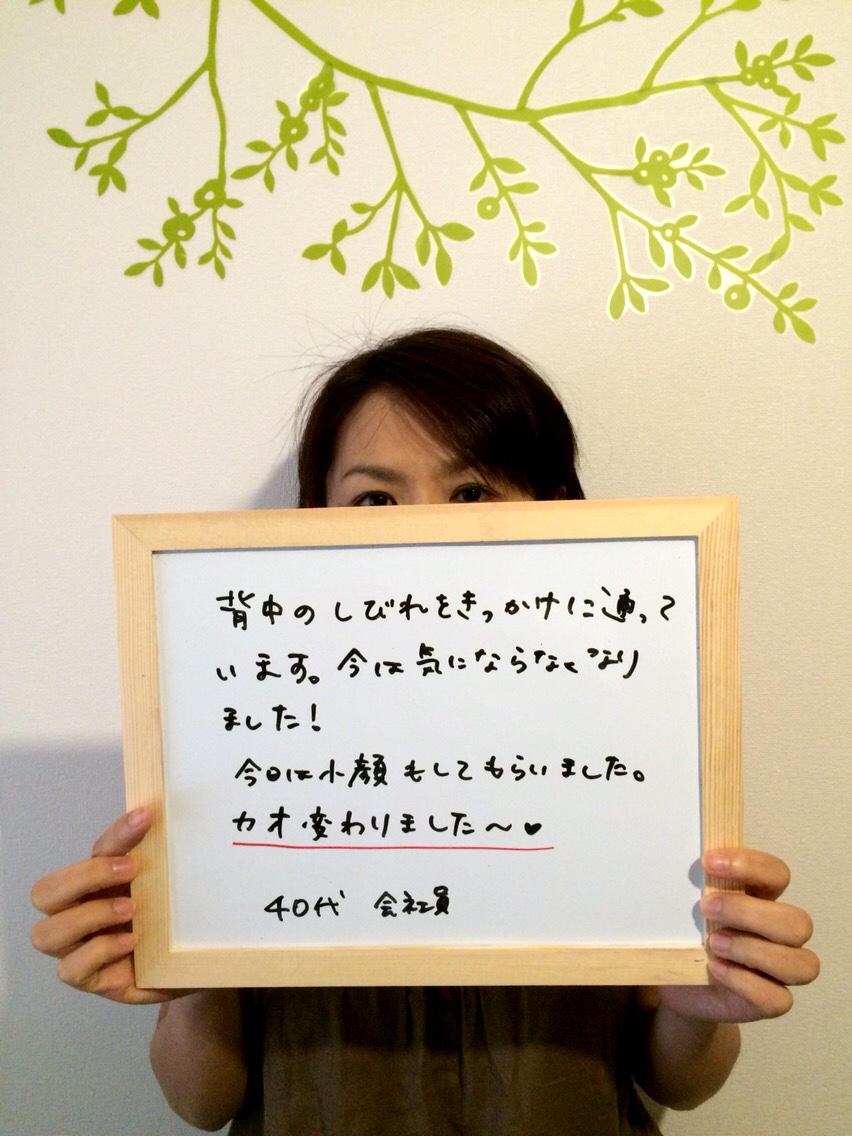 背中のしびれをきっかけに通って
います。今は気にならなくなり
ました!
今日は小顔もしてもらいました。
カオ変わりました〜♥
40代 会社員